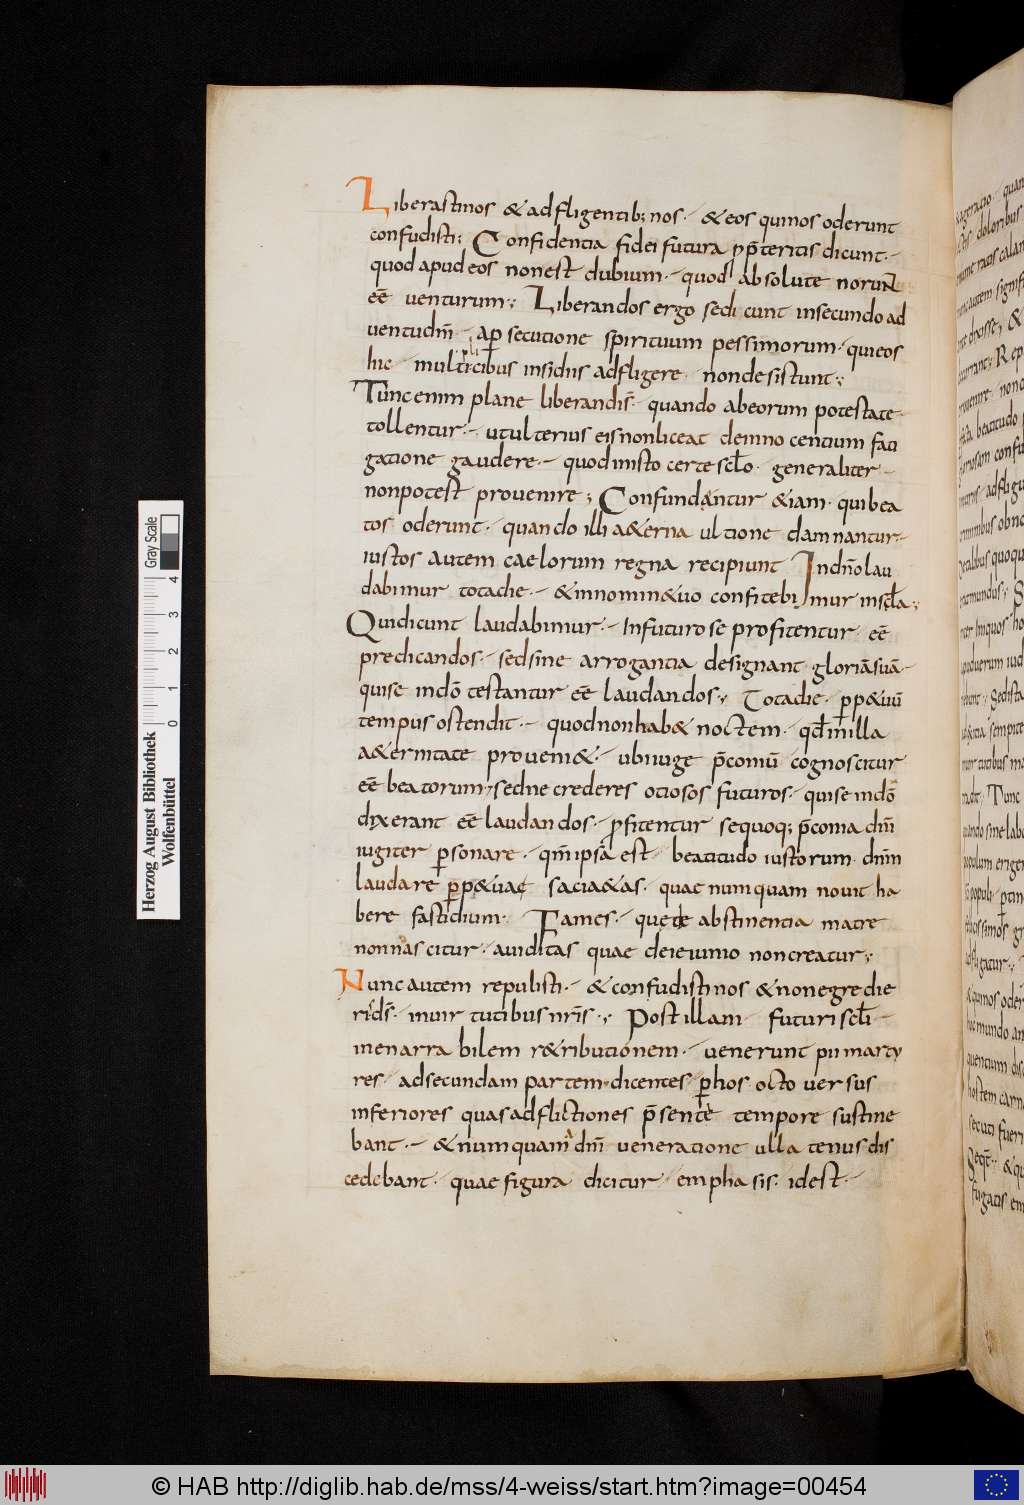 Liberasti nos & adfligentib; nos· & eos qui nos oderunt
confudisti; Confidentia fidei futura p p̄teritis dicunt·
quod apud eos non est dubium· quod absolute norunt
eē venturum; Liberandos ergo se dicunt in secundo ad
ventu dn̄i· a p̱secutione spirituum pessimorum· qui eos
hic multiplicibus insidiis adfligere non desistunt;
Tunc enim plane liberandi s̄· quando ab eorum potestate
tollentur· ut ulterius eis non liceat de innocentium fati
gatione gaudere· quod in isto certe scl̄o· generaliter
non potest provenire; Confundantur &iam· qui bea
tos oderunt· quando illi a&erna ultione damnantur·
iustos autem caelorum regna recipiunt In dn̄o lau
dabimur tota die· & in nomin& uo confitebimur in scl̄a;
Qui dicunt laudabimur· In futuro se profitentur eē
predicandos· sed sine arrogantia designant gloriā suā·
qui se in dō testantur eē laudandos; Tota die p̱p&uū
tempus ostendit· quod non hab& noctem· qd̄ in illa
a&ernitate proveni&· ubi iuge p̄coniū cognoscitur
eē beatorum, sed ne crederes otiosos futuros· qui se in dō
dixerant eē laudandos· pfitentur se quoq; p̄conia dn̄i
iugiter p̱sonare· qm̄ ipsa est beatitudo iustorum dn̄m
laudare p̱p&uae sacia&as· quae numquam novit ha
bere fastidium· Fames· que de abstinentia matre
non nascitur· auiditas quae de ieiunio non creatur;
Nunc autem repulisti· & confudisti nos & non egredie
ri ds̄· in uirtutibus nr̄is; Post illam futuri scl̄i
inenarrabilem r&ributionem· uenerunt pii marty
res· ad secundam partem· dicentes p̱ hos octo uersus
inferiores quas adflictiones p̄sente tempore sustine
bant· & numquam a dn̄i ueneratione ullatenus dis
cedebant· quae figura dicitur emphasis· id est·
Herzog August Bibliothek
Wolfenbüttel
0 1 2 3 4
Gray Scale
© HAB http://diglib.hab.de/mss/4-weiss/start.htm?image=00454